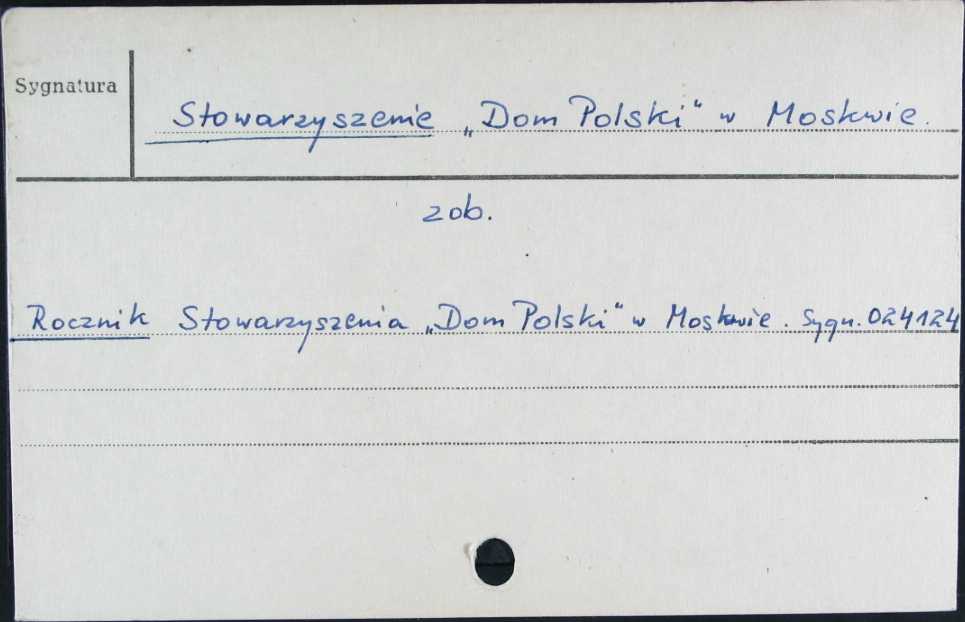 Sygnatura
Stowarzyszenie „Dom Polski“ w Moskwie.
zob.
Rocznik Stowarzyszenia „Dom Polski“ w Moskwie. Sygn. 024124